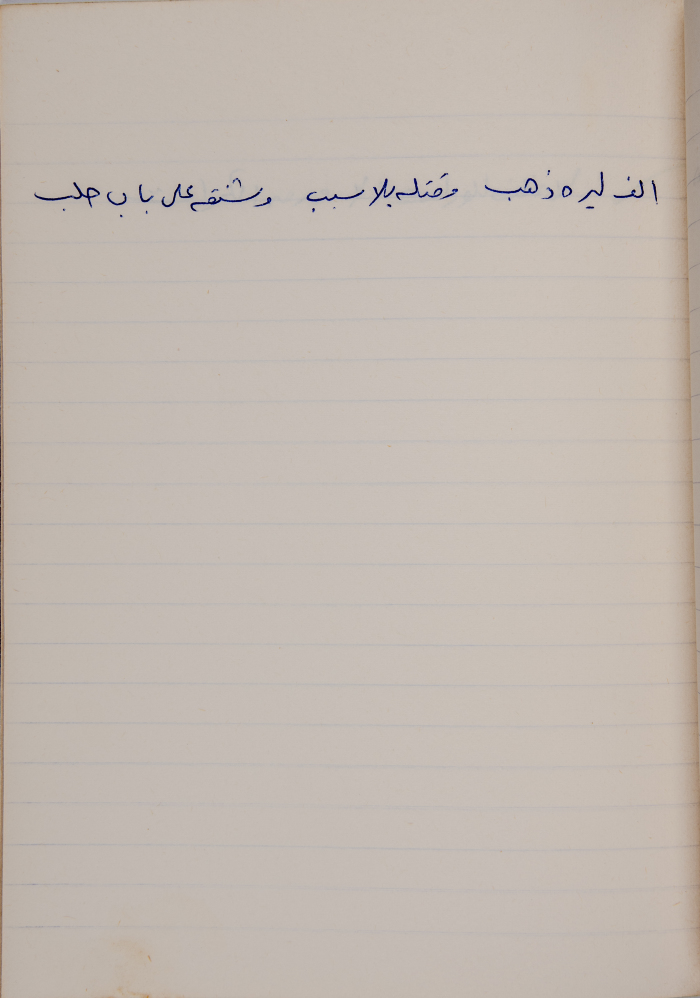 الف ليره ذهب وقتله بلا سبب وشنقه على باب حلب